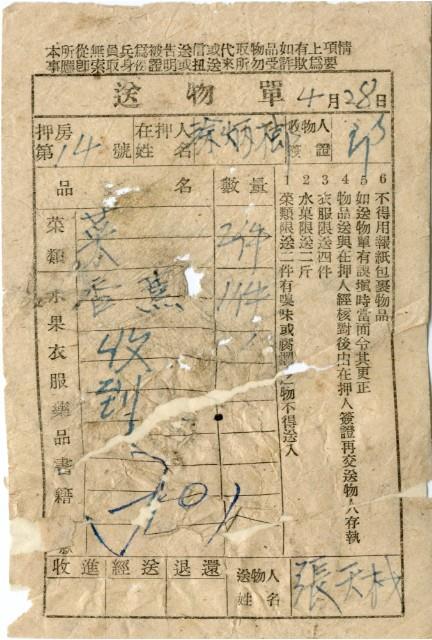 本所從無員兵為被告送信或代取物品如有上項情
事應即索取身份證明或扭送所勿受詐欺為要
送物單 4月28日
押房第14號 在押人姓名 收物人簽證
品名 數量
菜類 水果 衣服 藥品 書籍
菜 2件
香蕉 1件
收到
1 菜類限送二件有嗅味或腐濁之物不得送入
2 水菓限送二斤
3 衣服限送四件
4 物品送與在押人經核對後由在押人簽證再交送物人存執
5 如送物單有誤填時當面令其更正
6 不得用報紙包裹物品
收進 經送 退還 送物人姓名 張天